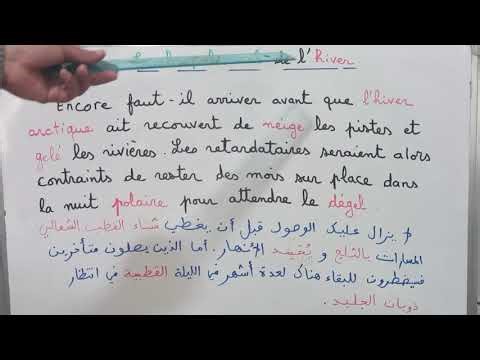 de l'hiver
Encore faut-il arriver avant que l'hiver
arctique ait recouvert de neige les pistes et
gelé les rivières. Les retardataires seraient alors
contraints de rester des mois sur place dans
la nuit polaire pour attendre le dégel.
يزال عليك الوصول قبل أن يغطي شتاء القطب الشمالي
المسارات بالثلج و الأنهار. أما الذين يصلون متأخرين
فسيضطرون للبقاء هناك لعدة أشهر في الليلة القطبية في انتظار
ذوبان الجليد.